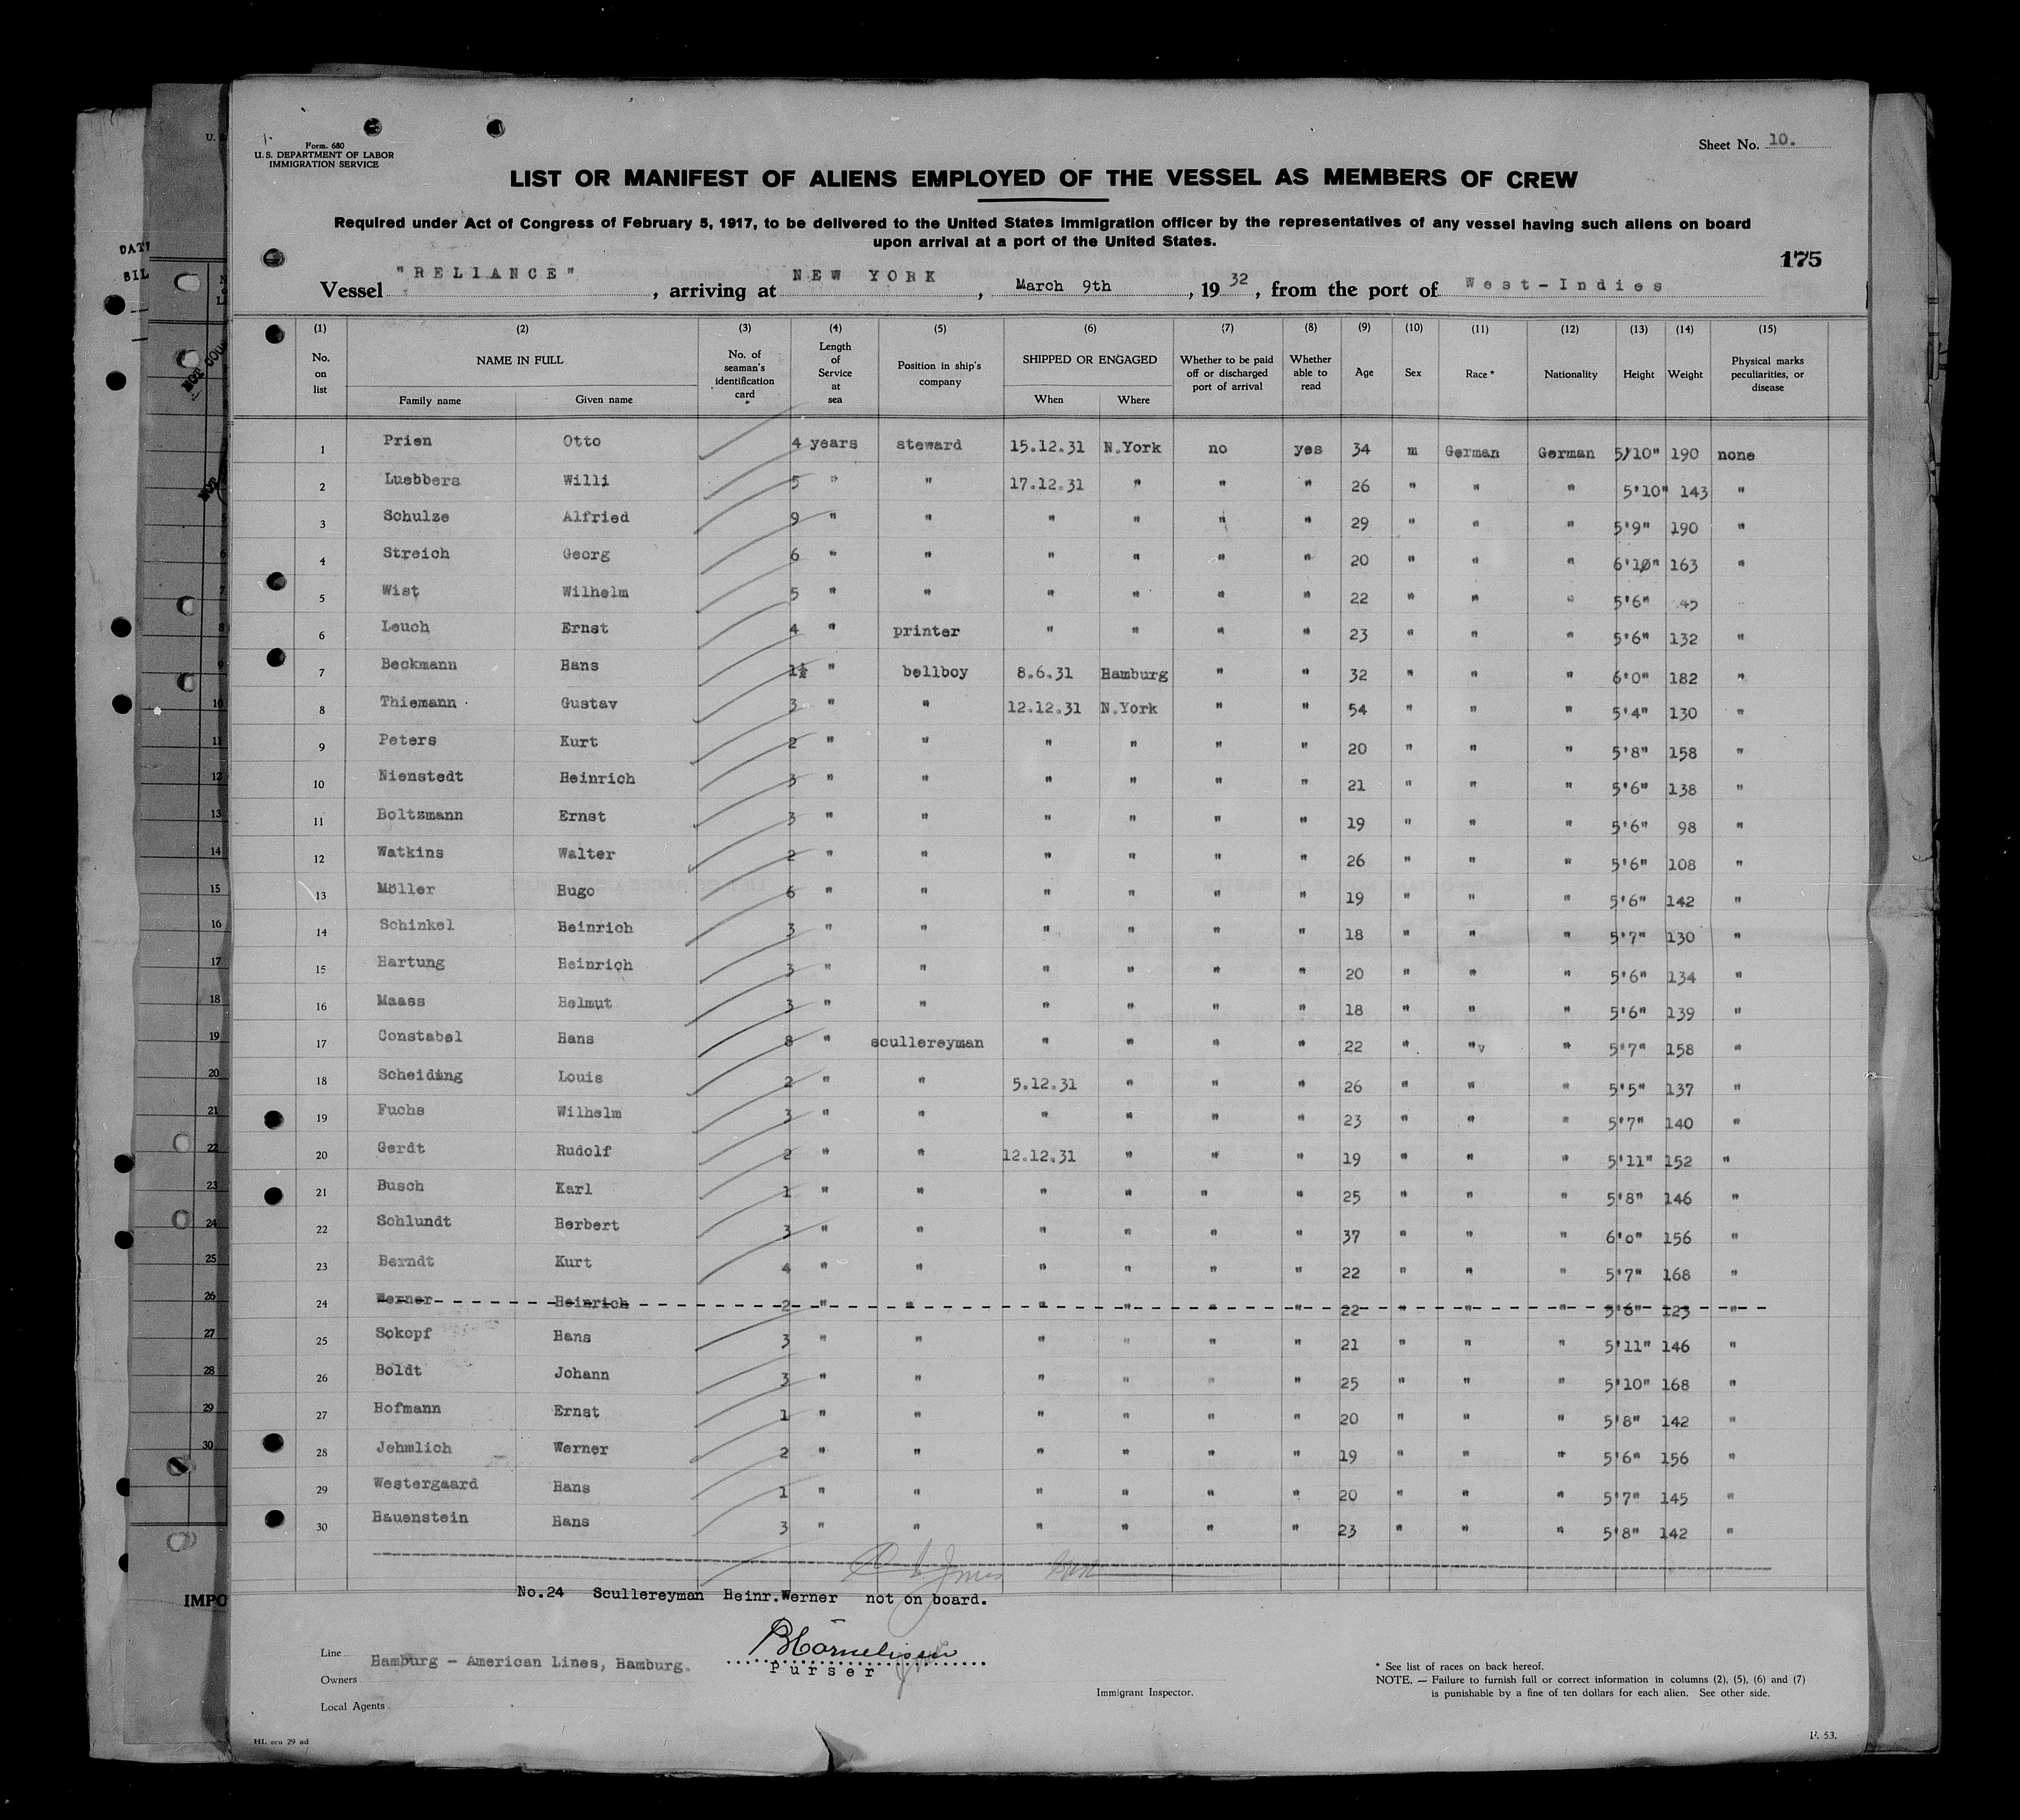 Form. 680
U. S. DEPARTMENT OF LABOR
IMMIGRATION SERVICE
Sheet No. 10.
LIST OR MANIFEST OF ALIENS EMPLOYED OF THE VESSEL AS MEMBERS OF CREW
Required under Act of Congress of February 5, 1917, to be delivered to the United States Immigration officer by the representatives of any vessel having such aliens on board
upon arrival at a port of the United States.
175
Vessel "RELIANCE", arriving at NEW YORK, March 9th, 1932, from the port of West-Indies
(1) (2) (3) (4) (5) (6) (7) (8) (9) (10) (11) (12) (13) (14) (15)
No. on list NAME IN FULL Family name Given name No. of seaman's identification card * Length of Service at sea Position in ship's company SHIPPED OR ENGAGED When Where Whether to be paid off or discharged port of arrival Whether able to read Age Sex Race * Nationality Height Weight Physical marks peculiarities, or disease
1 Prien Otto 4 years steward 15.12.31 N.York no yes 34 m German German 5'10" 190 none
2 Luebbers Willi 5 " " 17.12.31 " " " 26 " " " 5'10" 143 "
3 Schulze Alfried 9 " " " " " " 29 " " " 5'9" 190 "
4 Streich Georg 6 " " " " " " 20 " " " 6'10" 163 "
5 Wist Wilhelm 5 " " " " " " 22 " " " 5'6" 45
6 Leuch Ernst 4 " printer " " " " 23 " " " 5'6" 132 "
7 Beckmann Hans 1½ " bellboy 8.6.31 Hamburg " " 32 " " " 6'0" 182 "
8 Thiemann Gustav 3 " " 12.12.31 N.York " " 54 " " " 5'4" 130 "
9 Peters Kurt 2 " " " " " " 20 " " " 5'8" 158 "
10 Nienstedt Heinrich 3 " " " " " " 21 " " " 5'6" 138 "
11 Boltzmann Ernst 3 " " " " " " 19 " " " 5'6" 98 "
12 Watkins Walter 2 " " " " " " 26 " " " 5'6" 108 "
13 Möller Hugo 6 " " " " " " 19 " " " 5'6" 142 "
14 Schinkel Heinrich 3 " " " " " " 18 " " " 5'7" 130 "
15 Hartung Heinrich 3 " " " " " " 20 " " " 5'6" 134 "
16 Maass Helmut 3 " " " " " " 18 " " " 5'6" 139 "
17 Constabel Hans 8 " scullereyman " " " " 22 " "v " 5'7" 158 "
18 Scheiding Louis 2 " " 5.12.31 " " " 26 " " " 5'5" 137 "
19 Fuchs Wilhelm 3 " " " " " " 23 " " " 5'7" 140 "
20 Gerdt Rudolf 2 " " 12.12.31 " " " 19 " " " 5'11" 152 "
21 Busch Karl 1 " " " " " " 25 " " " 5'8" 146 "
22 Schlundt Herbert 3 " " " " " " 37 " " " 6'o" 156 "
23 Berndt Kurt 4 " " " " " " 22 " " " 5'7" 168 "
24 Werner Heinrich 2 " " " " " " 22 " " " 5'6" 123 "
25 Sokopf Hans 3 " " " " " " 21 " " " 5'11" 146 "
26 Boldt Johann 3 " " " " " " 25 " " " 5'10" 168 "
27 Hofmann Ernst 1 " " " " " " 20 " " " 5'8" 142 "
28 Jehmlich Werner 2 " " " " " " 19 " " " 5'6" 156 "
29 Westergaard Hans 1 " " " " " " 20 " " " 5'7" 145 "
30 Hauenstein Hans 3 " " " " " " 23 " " " 5'8" 142 "
No.24 Scullereyman Heinr.Werner not on board.
BCornelissen
Purser
Line
Hamburg - American Lines, Hamburg.
Owners
Local Agents
Immigrant Inspector.
* See list of races on back hereof.
NOTE. — Failure to furnish full or correct information in columns (2), (5), (6) and (7)
is punishable by a fine of ten dollars for each alien. See other side.
F. 53.
DAT
BIL
NOT COU
NOT
5
6
7
8
9
10
11
12
13
14
15
16
17
18
19
20
21
22
23
24
25
26
27
28
29
30
IMPO